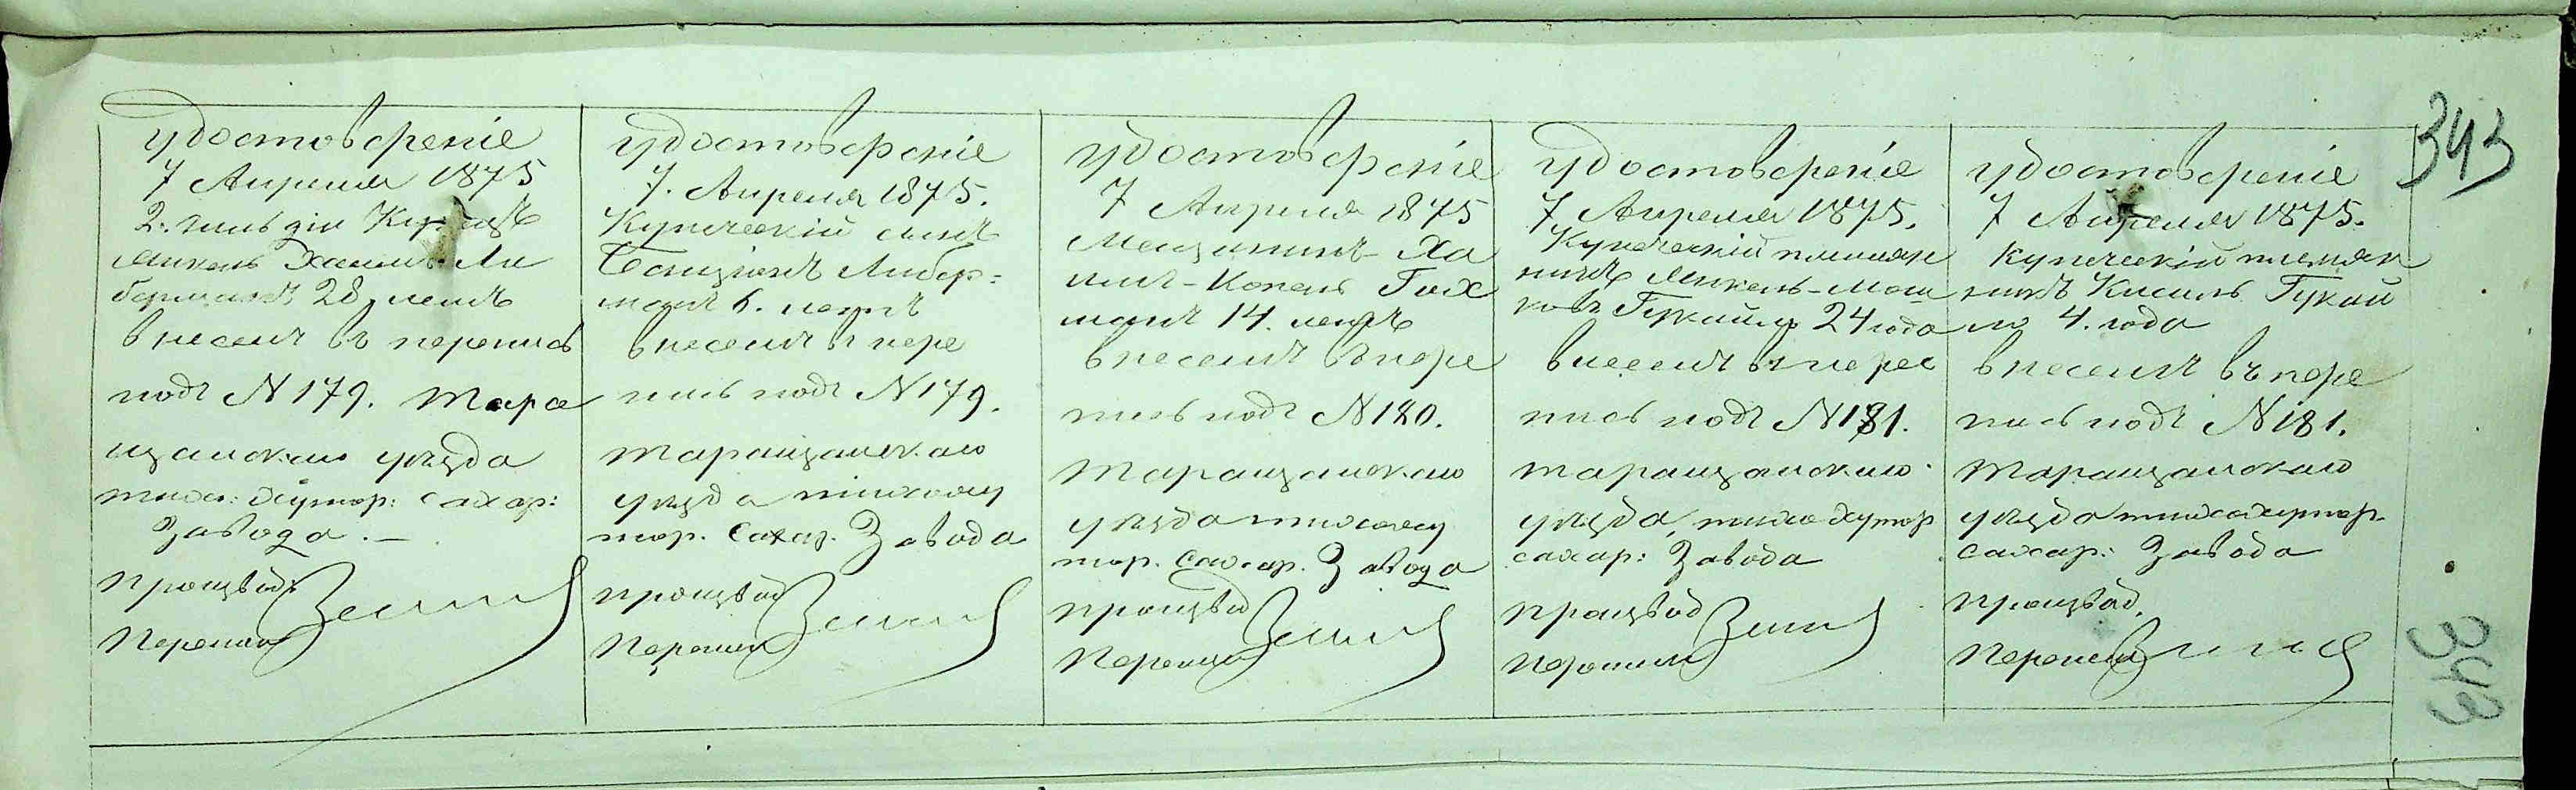 343
Удостоверенiе
7 Апреля 1875
2. гильдiи Купецъ
Янкель Хаим Ли
берманъ 28 летъ
внесенъ въ перепись
подъ N 179. Тара
щанскаго уезда
Тихо: Хутор: Сахар:
Завода. –
Производ:
Перепись
Удостоверенiе
7. Апреля 1875.
Купеческiй сынъ
Бенцiонъ Либер=
манъ 6. летъ
внесенъ въ пере
пись подъ N 179.
Таращанскаго
уезда Тихоху
тор. Сахар. Завода
Производ
Перепис
Удостоверенiе
7 Апреля 1875
Мещанинъ Ха
имъ-Копель Гих
манъ 14. летъ
внесенъ въ пере
пись подъ N 180.
Таращанскаго
уезда Тихоху
тор. Сахар. Завода
Производ
Перепис
Удостоверенiе
7 Апреля 1875.
Купеческiй племян
никъ Янкель-Мош
ковъ 24 года
внесенъ въ пере
пись подъ N 181.
Таращанскаго
уезда, Тихо хутор
сахар: Завода
Производ
Перепис
Удостоверенiе
7 Апреля 1875.
Купеческiй племян
никъ Кисиль
4. года
внесенъ въ пере
пись подъ N 181.
Таращанскаго
уезда Тихохутор.
сахар: Завода
Производ.
Перепис